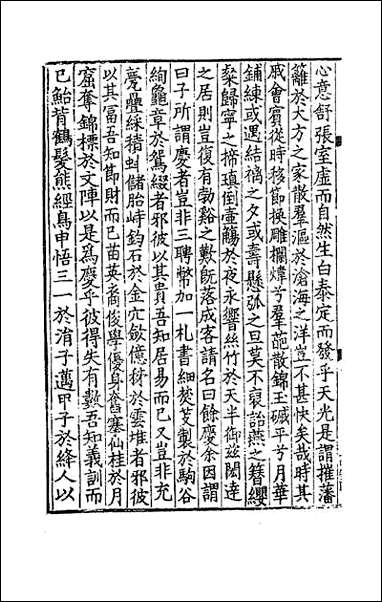 心意舒張室虛而自然生白泰定而發乎天光是謂摧藩
籬於大方之家散羣漚於滄海之洋豈不甚快矣哉時其
戚會賓從時移節換雕欄煒兮羣葩散錦玉墄平兮月華
鋪練或遇結褵之夕或壽懸弧之旦莫不裒詒燕之簪纓
粲歸寧之掃瑱倒壺觴於夜永響絲竹於天半御兹閎達
之居則豈復有勃谿之歎旣落成客請名曰餘慶余因謂
曰子所謂慶者豈非三聘幣加一札書細芰芰製於駒谷
絢龜章於鴛綴者邪彼以其貴吾知居易而已又豈非充
甍疊綵積蚪儲胎峙鈞石於金穴斂億秭於雲堆者邪彼
以其富吾知節財而已苗英裔俊學優身奮塞仙桂於月
窟奪錦標於文陣以是爲慶乎彼得失有數吾知義訓而
已鮐背鶴髮熊經鳥申悟三一於涓子邁甲子於絳人以